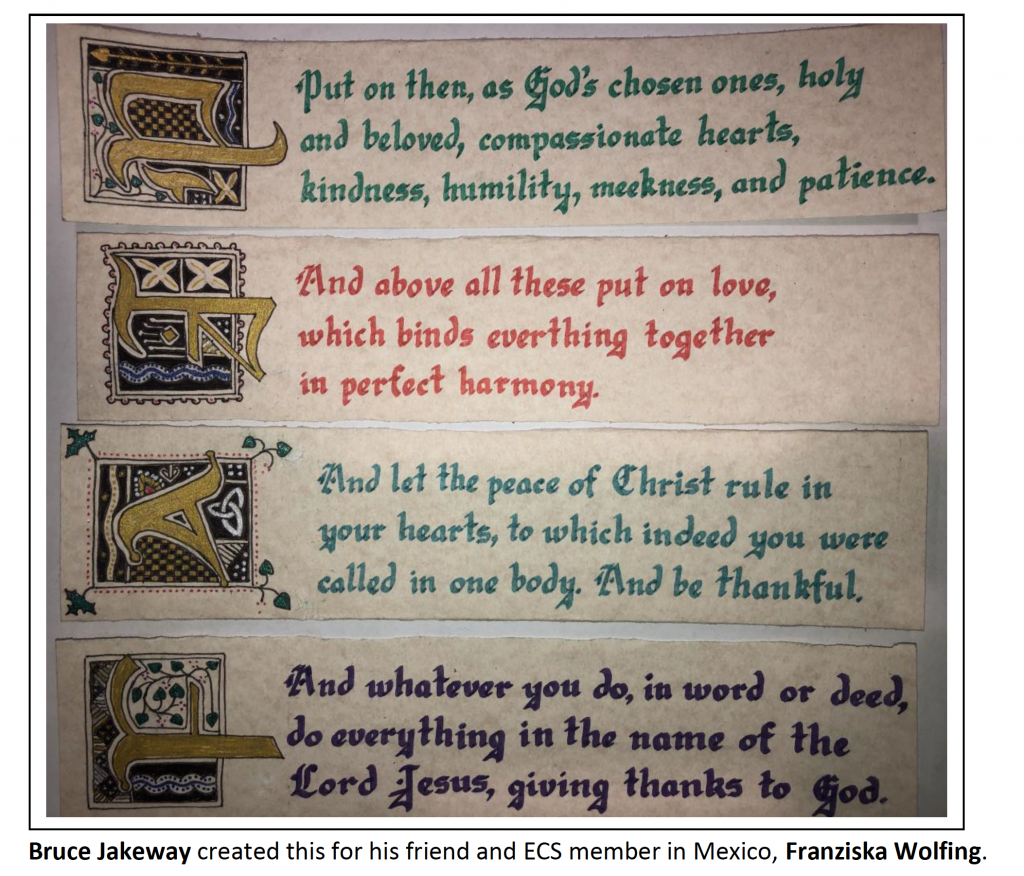 Put on then, as God's chosen ones, holy
and beloved, compassionate hearts,
kindness, humility, meekness, and patience.
And above all these put on love,
which binds everthing together
in perfect harmony.
And let the peace of Christ rule in
your hearts, to which indeed you were
called in one body. And be thankful.
And whatever you do, in word or deed,
do everything in the name of the
Lord Jesus, giving thanks to God.
Bruce Jakeway created this for his friend and ECS member in Mexico, Franziska Wolfing.